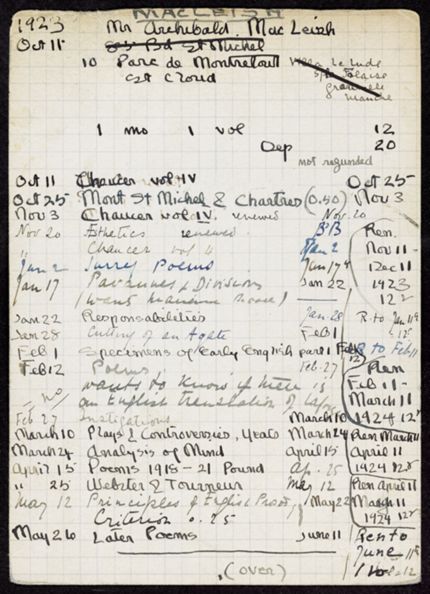 MACLEISH
1923 Mr Archibald MacLeish
Oct 11 Bd St Michel
10 Parc de Montretout Villa Le
St Cloud Granville
Manche
1 mo 1 vol 12
Dep 20
not refunded
Oct 11 Chaucer vol IV Oct 25
Oct 25 Mont St Michel & Chartres (0.50) Nov 3
Nov 3 Chaucer vol IV. renewed Nov. 20
Nov 20 Esthetics renewed BB Ren.
" Chaucer vol Jan 2 Nov 11 -
Jan 2 Surrey Poems Jan 17 Dec 11
Jan 17 Pavannes & Divisions Jan 22 1923
12
Jan 22 Responsibilities Jan 28 R. to Jan 11
Jan 28 Cutting of an Agate Feb 1
Feb 1 Specimens of Early English part 1 Feb R to Feb 11
Feb 12 Poems Feb. 27 Ren
wants to know if there is Feb 11 -
no an English translation of March 11
Feb 27 Instigations March 10 1924 12
March 10 Plays & Controversies, Yeats March 24 Ren March 11
March 24 Analysis of Mind April 15 April 11
April 15 Poems 1918-21 Pound Ap. 25 1924 12
" 25 Webster & Tourneur May 12 Ren April 11
May 12 Principles of English Prose, May 22 March 11
Criterion 0.25 1924 12
May 26 Later Poems June 11 Ren to
June 11
(over)